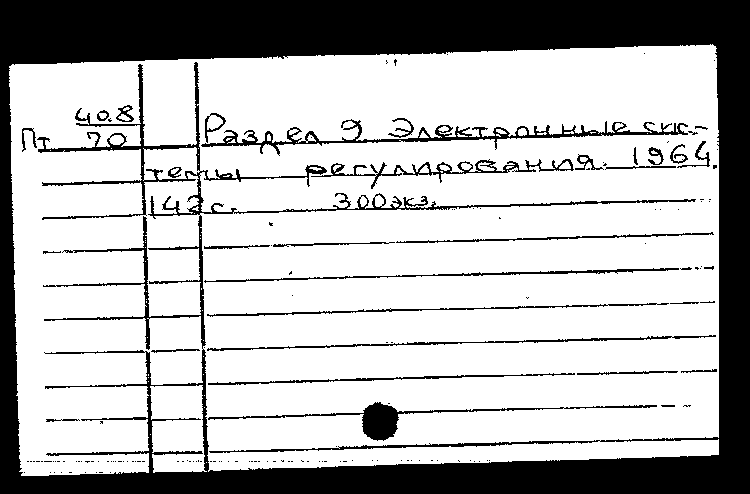 Пт 40.8/70 Раздел 9. Электронные сис-
темы регулирования. 1964.
142 с. 300 экз.